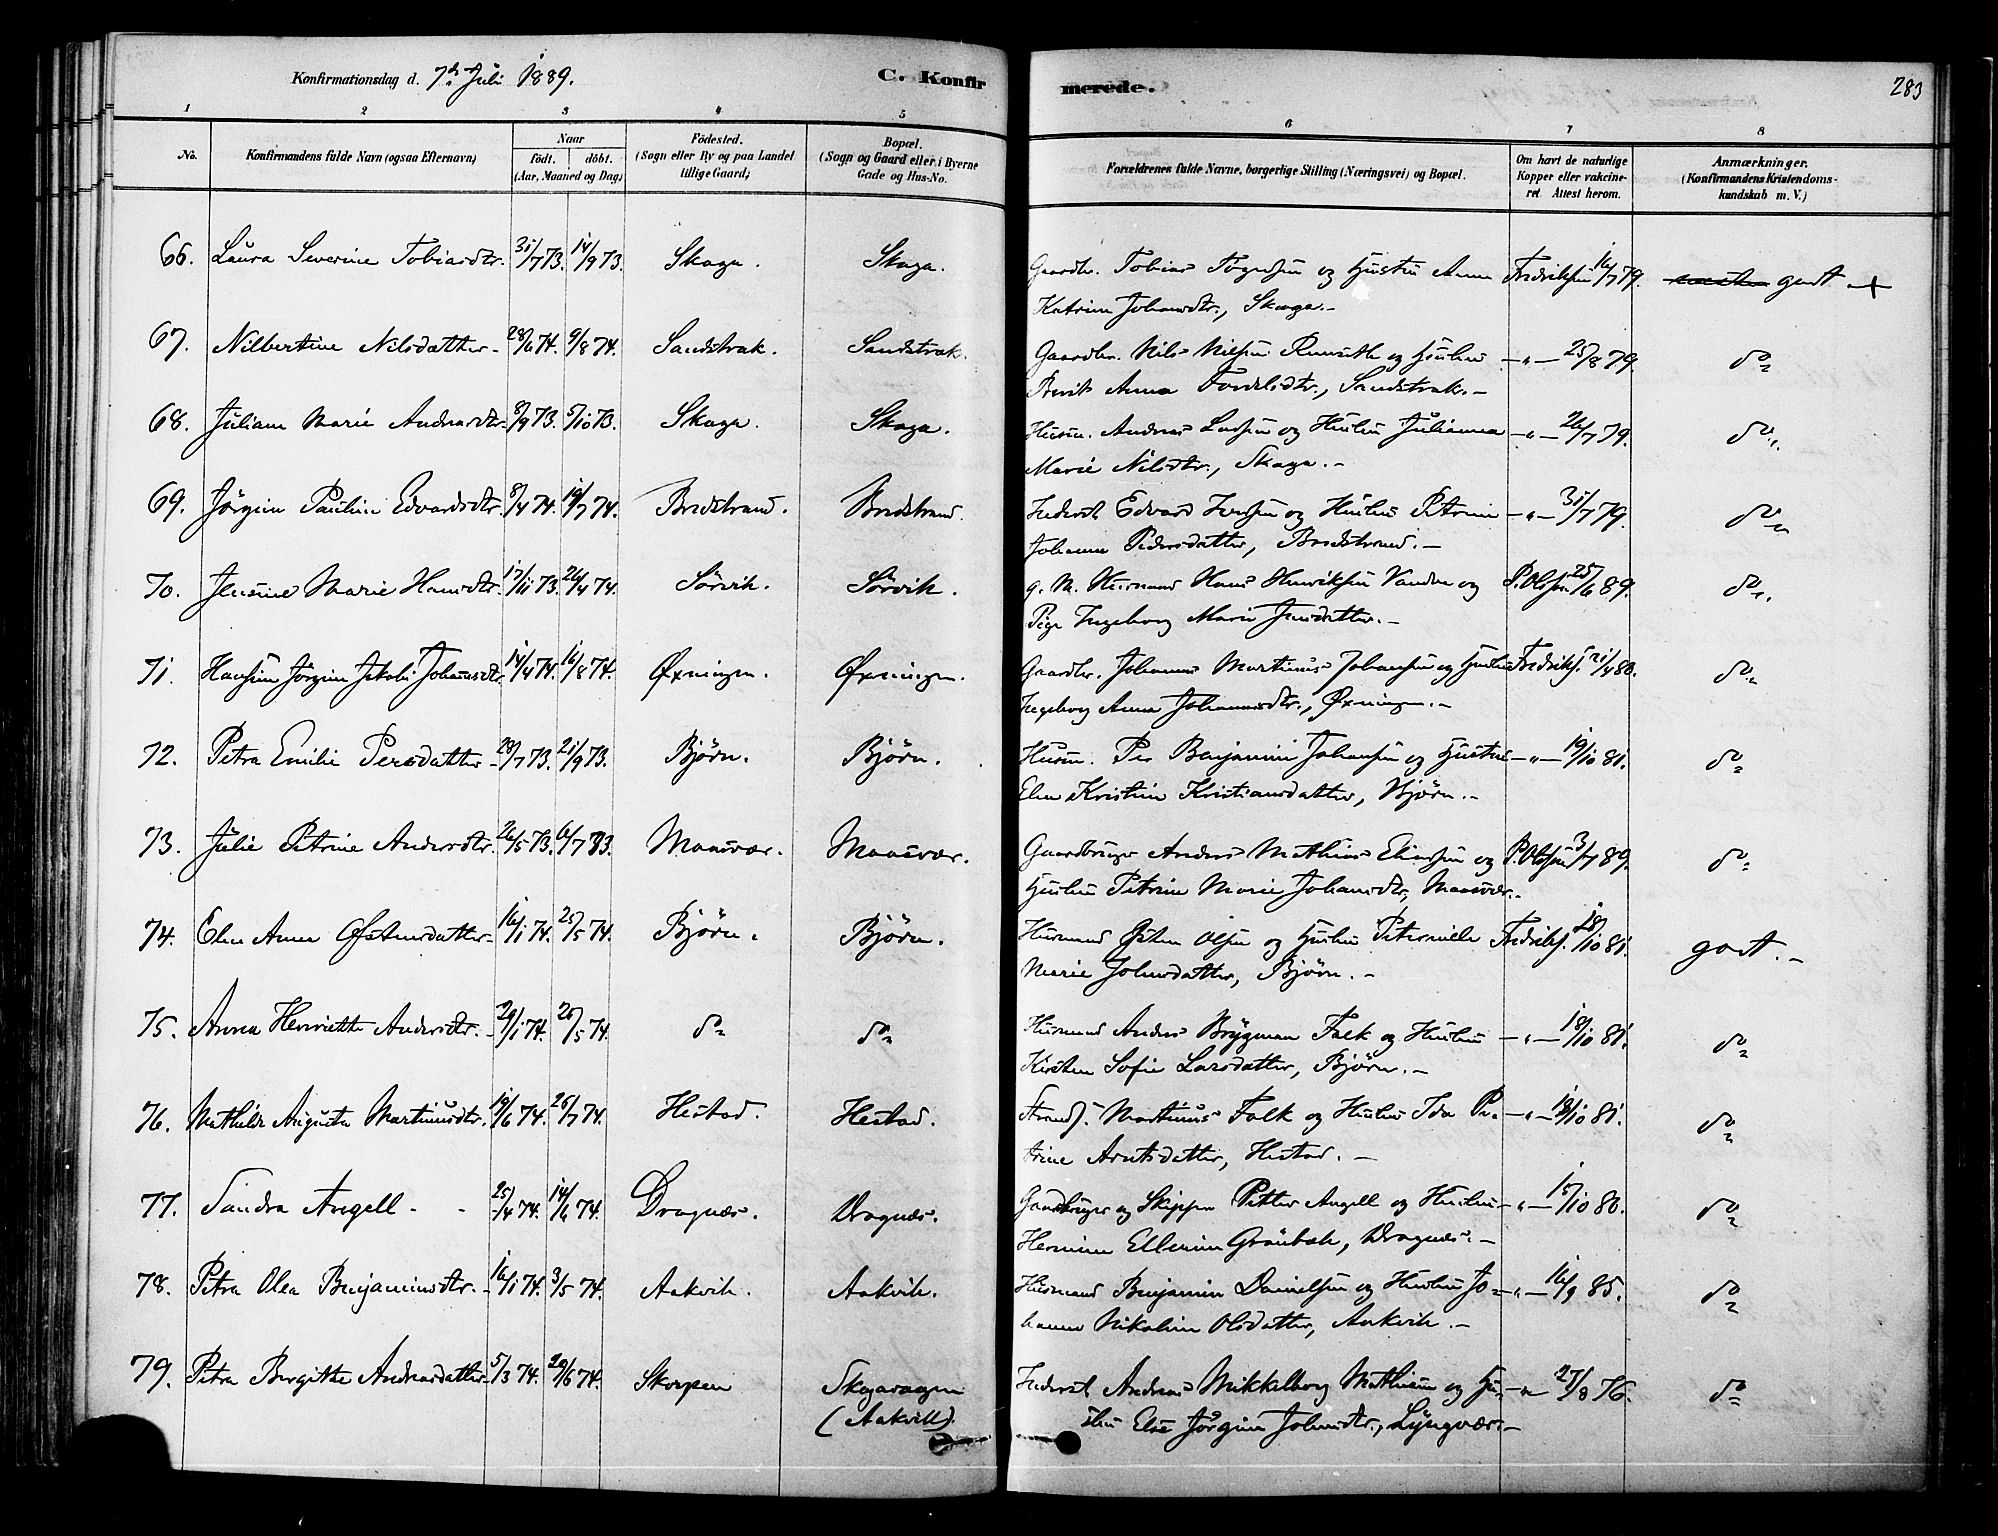 Konfirmationsdag d. 7de Juli 1889.
C. Konfirmerede.
283
1 2 3 4 5 6 7 8
No.
Konfirmandens fulde Navn (ogsaa Efternavn)
Naar
födt. döbt.
(Aar, Maaned og Dag)
Födested.
(Sogn eller By og paa Landet
tillige Gaard)
Bopæl.
(Sogn og Gaard eller i Byerne
Gade og Hus-No.
Forældrenes fulde Navne, borgerlige Stilling (Næringsvei) og Bopæl.
Om havt de naturlige
Kopper eller vakcine-
ret Attest herom.
Anmærkninger.
(Konfirmandens Kristendoms-
kundskab m. V.)
66. Laura Severine Tobiasdtr. 31/7 73. 14/9 73. Skaga. Skaga. Gaardbr. Tobias og Hustru Anna Fredriksen 16/7 79. godt
Katrine Johansdtr., Skaga.-
67. Nilbertine Nilsdatter- 28/6 74. 9/8 74. Sandstrak. Sandstrak. Gaardbr. Nils Nilsen og Hustru -„- 25/8 79. do
Anna, Sandstrak.-
68. Juliane Marie Andreasdtr. 8/9 73. 5/10 73. Skaga. Skaga. Husm. Andreas Larsen og Hustru Julianna -„- 26/7 79. do
Marie Nilsdtr., Skaga.-
69. Jörgine Pauline Edvardsdtr. 8/4 74. 19/7 74. Bredstrand. Bredstrand. Inderst Edvard og Hustru Petrine -„- 31/7 79. do
Johanna Pedersdatter, Bredstrand.-
70. Jensine Marie Hansdtr. 17/11 73. 26/4 74. Sörvik. Sörvik. g. M. Husmand Hans Henriksen og P. Olsen 25/6 89. do
Pige Ingeborg Marie Jensdatter.-
71. Hansine Jörgine Jakobi Johansdtr. 14/4 74. 16/8 74. Øxningen. Øxningen. Gaardbr. Johannes Martinus Johansen og Hustru Fredriks. 21/4 80. do
Ingeborg Anna Johannesdtr., Øxningen.-
72. Petra Emilie Persdatter- 28/7 73. 21/9 73. Björn. Björn. Husm. Per Benjamin Johansen og Hustru -„- 19/10 81. do
Elen Kristine Kristiansdatter, Björn.-
73. Julie Petrine Andersdtr. 26/5 73. 6/7 73. Maasvær. Maasvær. Gaardbruger Anders Mathias Eliassen og P. Olsen 3/7 89. do
Hustru Petrine Marie Johansdtr, Maasvær.-
74. Elen Anna Østensdatter- 16/1 74. 25/5 74. Björn. Björn. Husmand Østen Olsen og Hustru Peternille Fredriks. 18/10 81. godt.-
Marie Johnsdatter, Björn.-
75. Anna Henriette Andersdtr.- 29/1 74. 25/5 74. do do Husmand Anders Brygman Falk og Hustru -„- 18/10 81. do
Kirsten Sofie Larsdatter, Björn.-
76. Mathilde Augusta Martinusdtr. 19/6 74. 26/7 74. Hestad. Hestad. Martinus Falk og Hustru Ida Pe- -„- 18/10 81. do
trine Arntsdatter, Hestad.-
77. Sandra Angell - - 25/4 74. 14/6 74. Dragnæs. Dragnæs. Gaardbruger og Skipper Petter Angell og Hustru -„- 15/10 80. do
Hermine Ellenine Grönbæk, Dragnæs.-
78. Petra Olea Benjaminsdtr.- 16/1 74. 3/5 74. Aakvik. Aakvik. Husmand Benjamin Danielsen og Hustru Jo- -„- 16/9 85. do
hanna Nikoline Olsdatter, Aakvik.-
79. Petra Birgitte Andreasdatter- 5/3 74. 29/6 74. Skorpen Skagavagen Inderst Andreas Mikkelborg Mathisen og Hu- -„- 27/8 76. do
(Aakvik). stru Else Jörgine Johnsdtr., Lyngvær.-